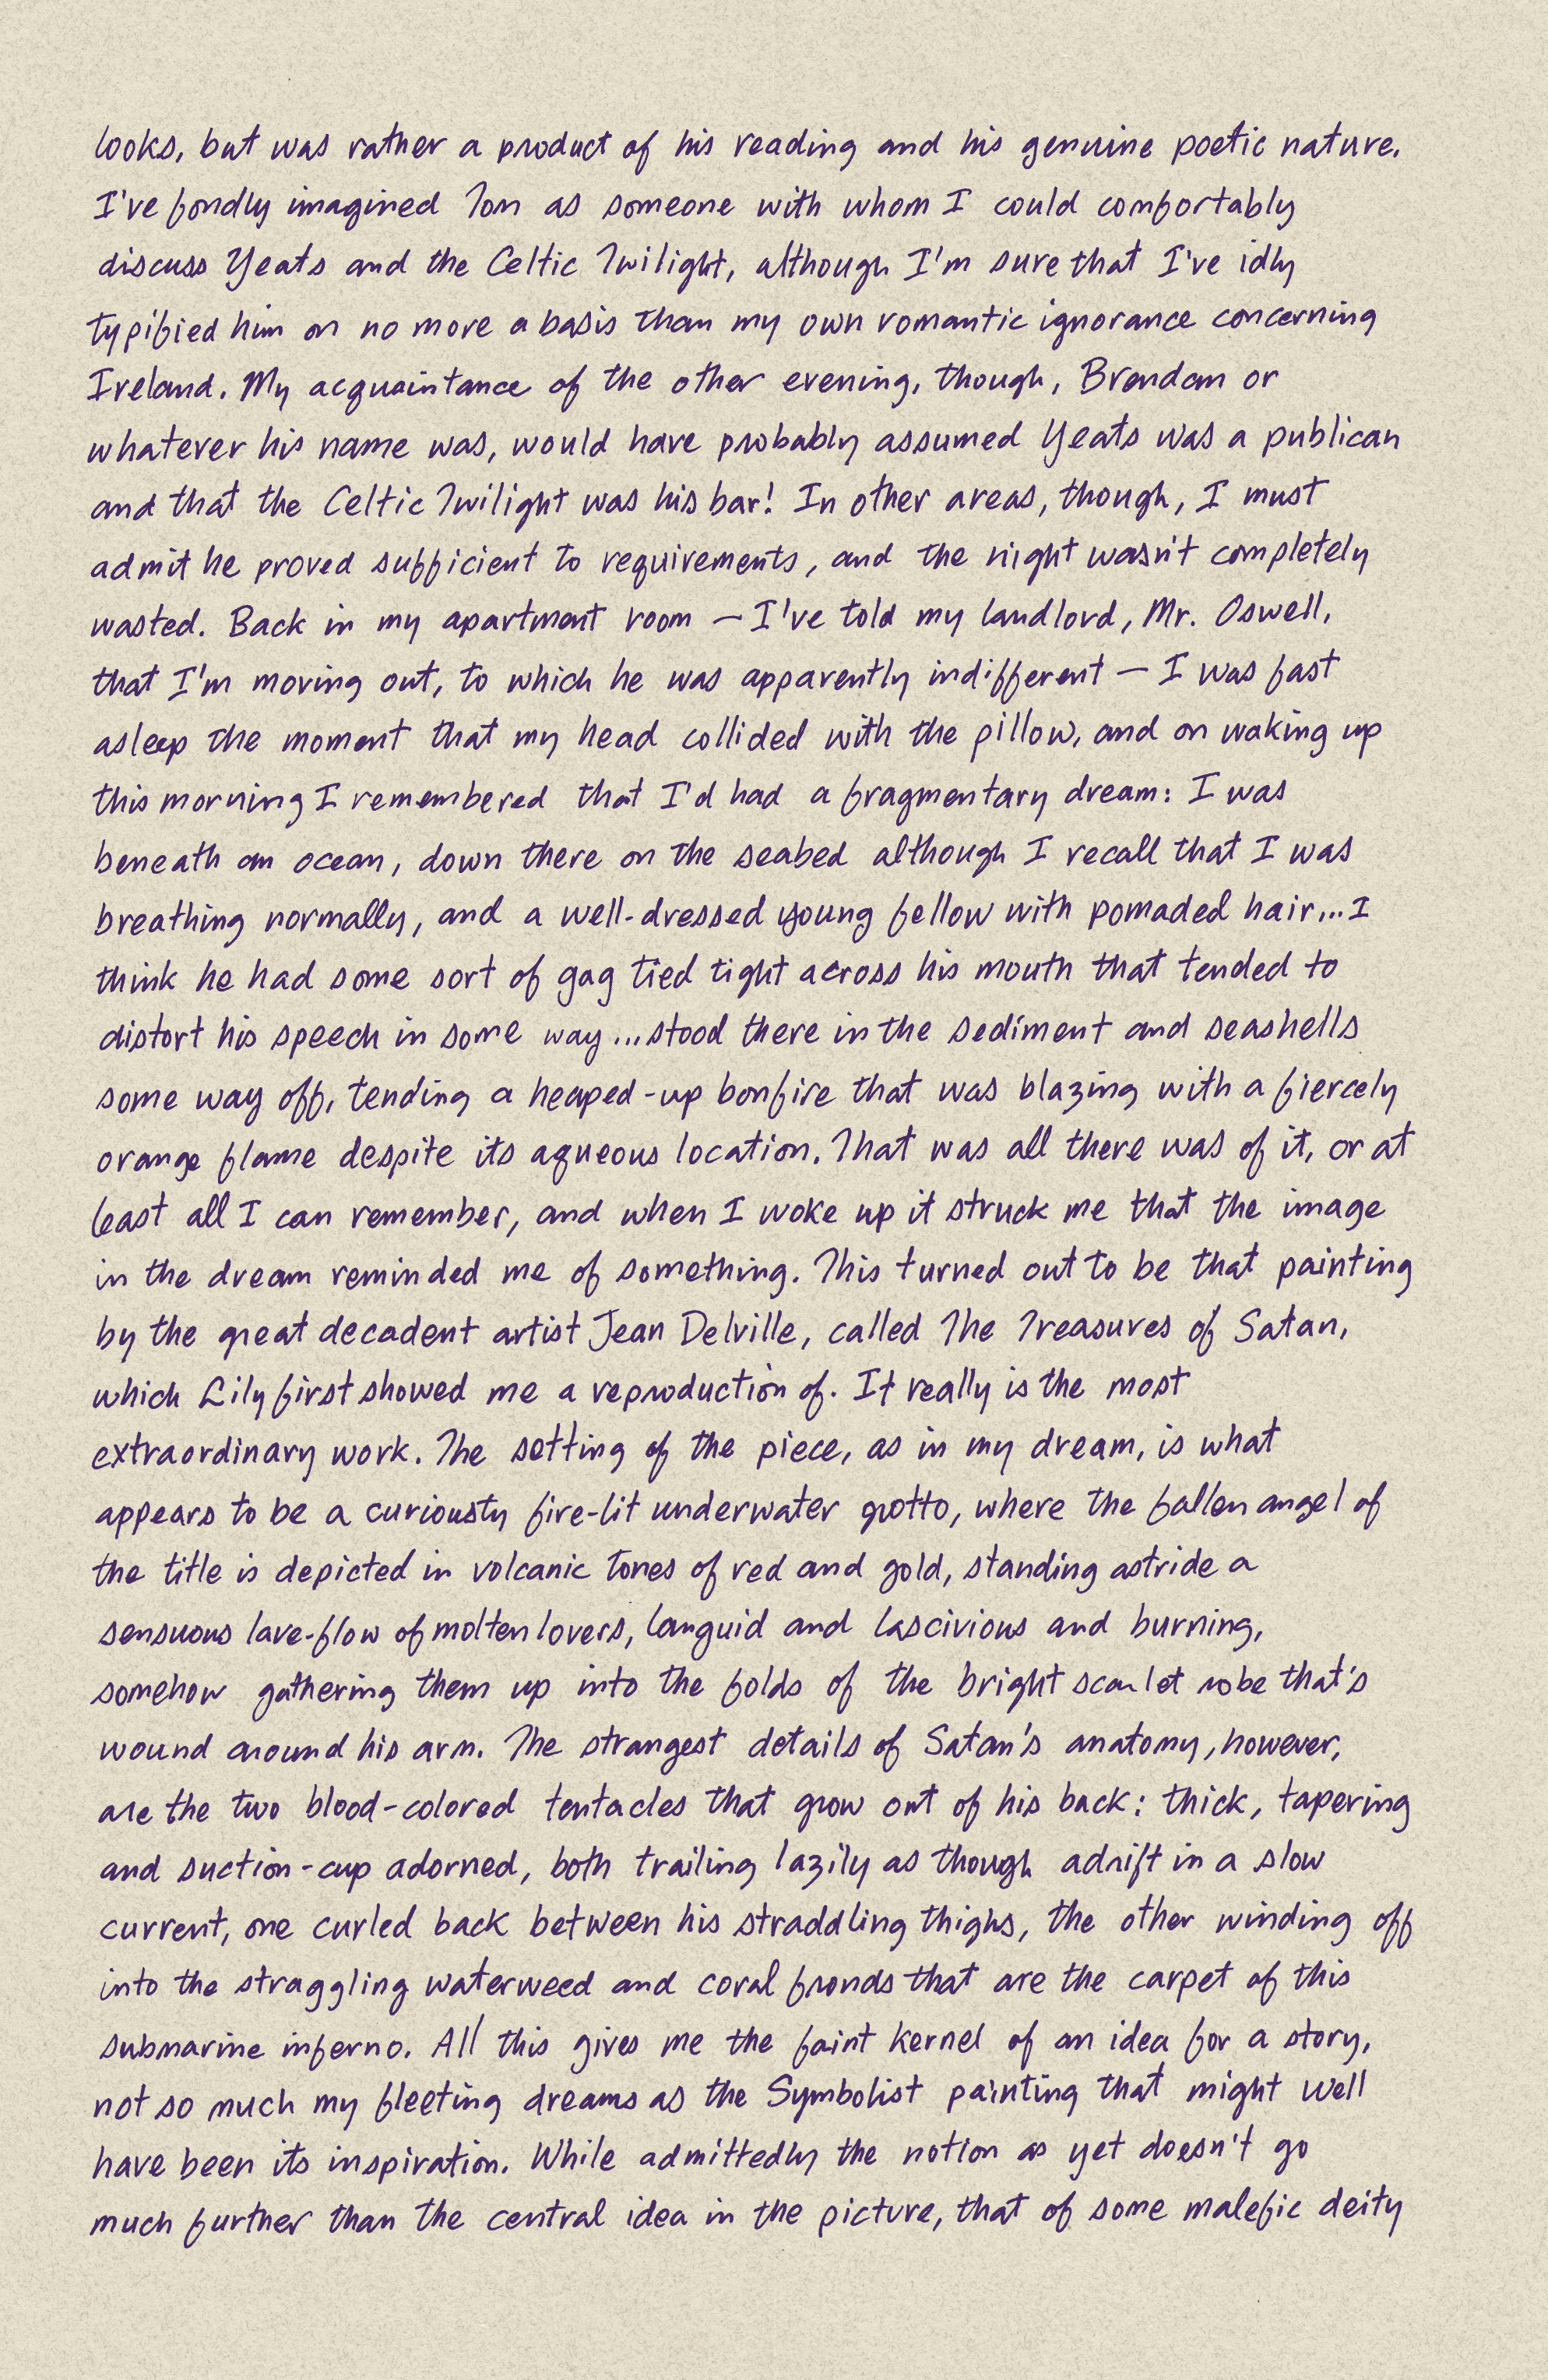 looks, but was rather a product of his reading and his genuine poetic nature.
I've fondly imagined Tom as someone with whom I could comfortably
discuss Yeats and the Celtic Twilight, although I'm sure that I've idly
typified him on no more a basis than my own romantic ignorance concerning
Ireland. My acquaintance of the other evening, though, Brendan or
whatever his name was, would have probably assumed Yeats was a publican
and that the Celtic Twilight was his bar! In other areas, though, I must
admit he proved sufficient to requirements, and the night wasn't completely
wasted. Back in my apartment room — I've told my landlord, Mr. Oswell,
that I'm moving out, to which he was apparently indifferent — I was fast
asleep the moment that my head collided with the pillow, and on waking up
this morning I remembered that I'd had a fragmentary dream: I was
beneath an ocean, down there on the seabed although I recall that I was
breathing normally, and a well-dressed young fellow with pomaded hair... I
think he had some sort of gag tied tight across his mouth that tended to
distort his speech in some way... stood there in the sediment and seashells
some way off, tending a heaped-up bonfire that was blazing with a fiercely
orange flame despite its aqueous location. That was all there was of it, or at
least all I can remember, and when I woke up it struck me that the image
in the dream reminded me of something. This turned out to be that painting
by the great decadent artist Jean Delville, called The Treasures of Satan,
which Lily first showed me a reproduction of. It really is the most
extraordinary work. The setting of the piece, as in my dream, is what
appears to be a curiously fire-lit underwater grotto, where the fallen angel of
the title is depicted in volcanic tones of red and gold, standing astride a
sensuous lave-flow of molten lovers, languid and lascivious and burning,
somehow gathering them up into the folds of the bright scarlet robe that's
wound around his arm. The strangest details of Satan's anatomy, however,
are the two blood-colored tentacles that grow out of his back: thick, tapering
and suction-cup adorned, both trailing lazily as though adrift in a slow
current, one curled back between his straddling thighs, the other winding off
into the straggling waterweed and coral fronds that are the carpet of this
submarine inferno. All this gives me the faint kernel of an idea for a story,
not so much my fleeting dreams as the Symbolist painting that might well
have been its inspiration. While admittedly the notion as yet doesn't go
much further than the central idea in the picture, that of some malefic deity